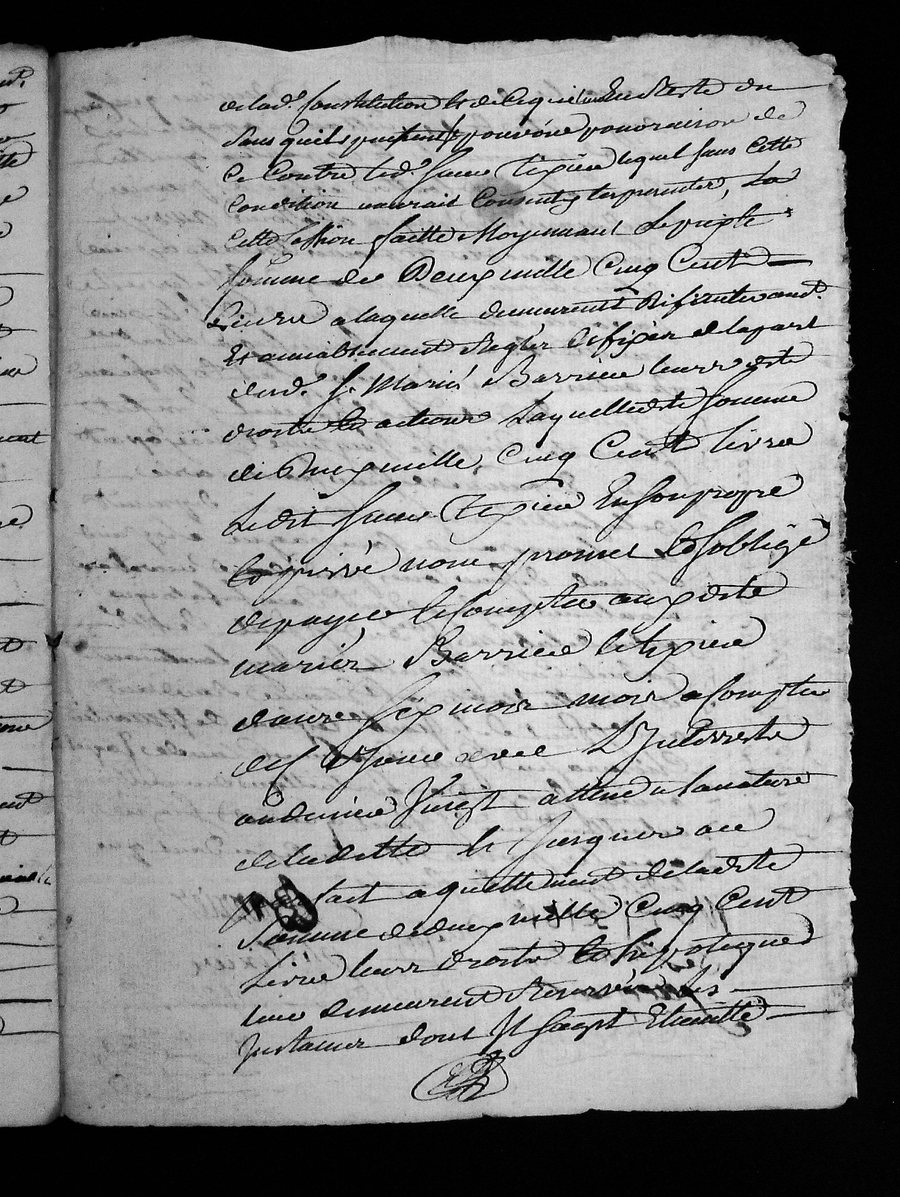 de lad. Constitution et de ce qui en Reste du
sans quils puissent pouvoir pour raison de
Ce Contre led. sieur Tixier lequel sans Cette
Condition nauroit Consenty les presentes, La
Cette Cession faitte Moyennant Le prix &
somme de Deux mille Cinq Cents
Livres a laquelle demeurent
Et amiablement Reglés et fixés de la part
desd. s. Mariés Barriere leurs dits
droits et actions Laquelle dite somme
de Deux mille Cinq Cents livres
Ledit sieur Tixier En son propre
et privé nom promet et soblige
de payer et Compter aux dits
mariés Barriere et tixier
dans six mois a Compter
de ce jour avec L'Interrests
au denier vingt attendu la nature
de la dette et jusques au
fait aquittement de la dite
somme de deux mille Cinq Cent
Livres leurs droits et hippoteques
leur demeurent Reservés Les
Instances dont Il sagit Eteintes